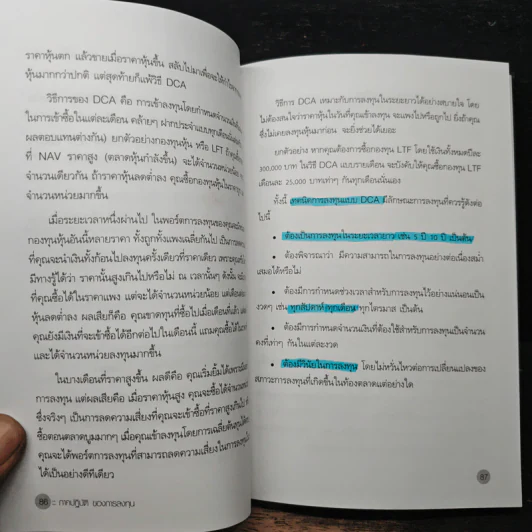 ราคาหุ้นตก แล้วขายเมื่อราคาหุ้นขึ้น สลับไปมาเพื่อจะได้กำไร
หุ้นมากกว่าปกติ แต่สุดท้ายก็แพ้วิธี DCA
วิธีการของ DCA คือ การเข้าลงทุนโดยกำหนดจำนวนเงิน
ในการเข้าซื้อในแต่ละเดือน คล้ายๆ ฝากประจำแบบทุกเดือน
ผลตอบแทนต่างกัน) ยกตัวอย่างกองทุนหุ้น หรือ LTF ถ้าคุณซื้อ
ที่ NAV ราคาสูง (ตลาดหุ้นกำลังขึ้น) จะได้จำนวนหน่วย
จำนวนเดียวกัน ถ้าราคาหุ้นลดต่ำลง คุณซื้อกองทุนหุ้นในราคาถูก
จำนวนหน่วยมากขึ้น
เมื่อระยะเวลาหนึ่งผ่านไป ในพอร์ตการลงทุนของคุณ
กองทุนหุ้นอันนี้หลายราคา ทั้งถูกทั้งแพงเฉลี่ยกันไป เป็นการลด
ที่คุณจะนำเงินทั้งก้อนไปลงทุนครั้งเดียวที่ราคาเดียว เพราะคุณ
มีทางรู้ได้ว่า ราคานั้นสูงเกินไปหรือไม่ ณ เวลานั้นๆ ดังนั้น
ที่คุณซื้อได้ในราคาแพง แต่จะได้จำนวนหน่วยน้อย แต่
หุ้นลดต่ำลง ผลเสียก็คือ คุณขาดทุนที่ซื้อไปเมื่อเดือนที่แล้ว
คุณยังมีเงินที่จะเข้าซื้อได้อีกต่อไปในเดือนนี้ แถมคุณซื้อได้ใน
และได้จำนวนหน่วยลงทุนมากขึ้น
ในบางเดือนที่ราคาสูงขึ้น ผลดีคือ คุณเริ่มยิ้มได้เพราะ
การลงทุน แต่ผลเสียคือ เมื่อราคาหุ้นสูง คุณจะซื้อได้จำนวน
ซึ่งจริงๆ เป็นการลดความเสี่ยงที่คุณจะเข้าซื้อที่ราคาสูงเกินไป
ซื้อตอนตลาดบูมมากๆ เมื่อคุณเข้าลงทุนโดยการเฉลี่ยต้นทุน
คุณจะได้พอร์ตการลงทุนที่สามารถลดความเสี่ยงในการลงทุน
ได้เป็นอย่างดีทีเดียว
86 :: ภาคปฏิบัติ ของการลงทุน
วิธีการ DCA เหมาะกับการลงทุนในระยะยาวได้อย่างสบายใจ โดย
ไม่ต้องสนใจว่าราคาหุ้นในวันที่คุณเข้าลงทุน จะแพงไปหรือถูกไป ยิ่งถ้าคุณ
ซึ่งไม่เคยลงทุนหุ้นมาก่อน จะยิ่งช่วยได้เยอะ
ยกตัวอย่าง หากคุณต้องการซื้อกองทุน LTF โดยใช้เงินทั้งหมดปีละ
300,000 บาท ในวิธี DCA แบบรายเดือน จะบังคับให้คุณซื้อกองทุน LTF
เดือนละ 25,000 บาทเท่าๆ กันทุกเดือนนั่นเอง
ทั้งนี้ เทคนิคการลงทุนแบบ DCA มีลักษณะการลงทุนที่ควรรู้ดังต่อ
ไปนี้
• ต้องเป็นการลงทุนในระยะเวลายาว เช่น 5 ปี 10 ปี เป็นต้น
• ต้องพิจารณาว่า มีความสามารถในการลงทุนอย่างต่อเนื่องสม่ำ
เสมอได้หรือไม่
• ต้องมีการกำหนดช่วงเวลาสำหรับการลงทุนไว้อย่างแน่นอนเป็น
งวดๆ เช่น ทุกสัปดาห์ ทุกเดือน ทุกไตรมาส เป็นต้น
• ต้องมีการกำหนดจำนวนเงินที่ต้องใช้สำหรับการลงทุนเป็นจำนวน
คงที่เท่าๆ กันในแต่ละงวด
• ต้องมีวินัยในการลงทุน โดยไม่หวั่นไหวต่อการเปลี่ยนแปลงของ
สภาวะการลงทุนที่เกิดขึ้นในท้องตลาดแต่อย่างใด
87